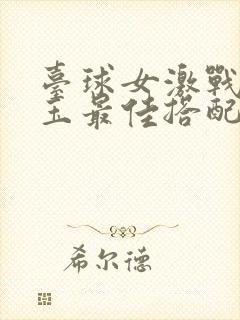 臺球女激戰
王最佳搭配
希尔德